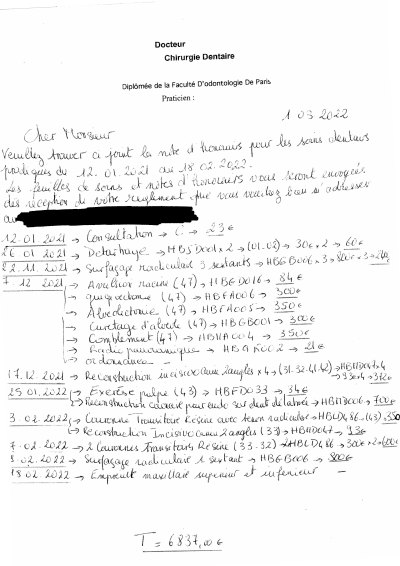 Docteur
Chirurgie Dentaire
Diplômée de la Faculté D'odontologie De Paris
Praticien :
1 03 2022
Cher Monsieur
Veuillez trouver ci joint la note d'honoraires pour les soins dentaires
prodigués du 12.01.2021 au 18 02.2022.
Les feuilles de soins et notes d'honoraires vous seront envoyées
dès réception de votre règlement que vous voudrez bien m'adresser
au
12-01 2021 → Consultation → C → 23€
26 01 2021 → Détartrage → HBJD001 x 2 → (01.02) → 30€ x 2 → 60€
22.11.2021 → Surfaçage radiculaire 3 sextants → HBGB006 x 3 → 800€ x 3 →
7 12 2021 → Avulsion racine (47) → HBGD016 → 84€
→ Gingivectomie (47) → HBFA006 → 300€
→ Alvéolectomie (47) → HBFA005 → 350€
→ Curetage d'alvéole (47) → HBGB001 → 300€
→ Complément (47) → → 350€
→ Radio panoramique → HBQK002 → 21€
→ ordonnance -
17.12 2021 → Reconstruction incisive canine 2 angles x 4 → (31.32.41.42) → HBMD047 x 4
→ 93€ x 4 → 372€
25.01 2022 → Exérèse pulpe (43) → HBFD033 → 34€
→ Reconstruction coronaire sur dent → → 700€
3 02.2022 → Couronne Transitoire Résine avec tenon radiculaire → HBLD486 → (43) 350
→ Reconstruction Incisive Canine 2 angles (33) → HBMD047 → 93€
7-02-2022 → 2 Couronnes Transitoires Résine (33.32) → HBLD486 → 300€ x 2 → 600€
8 02.2022 → Surfaçage radiculaire 1 sextant → HBGB006 → 800€
18 02 2022 → Empreinte maxillaire supérieur et inférieur -
T = 6837,00€